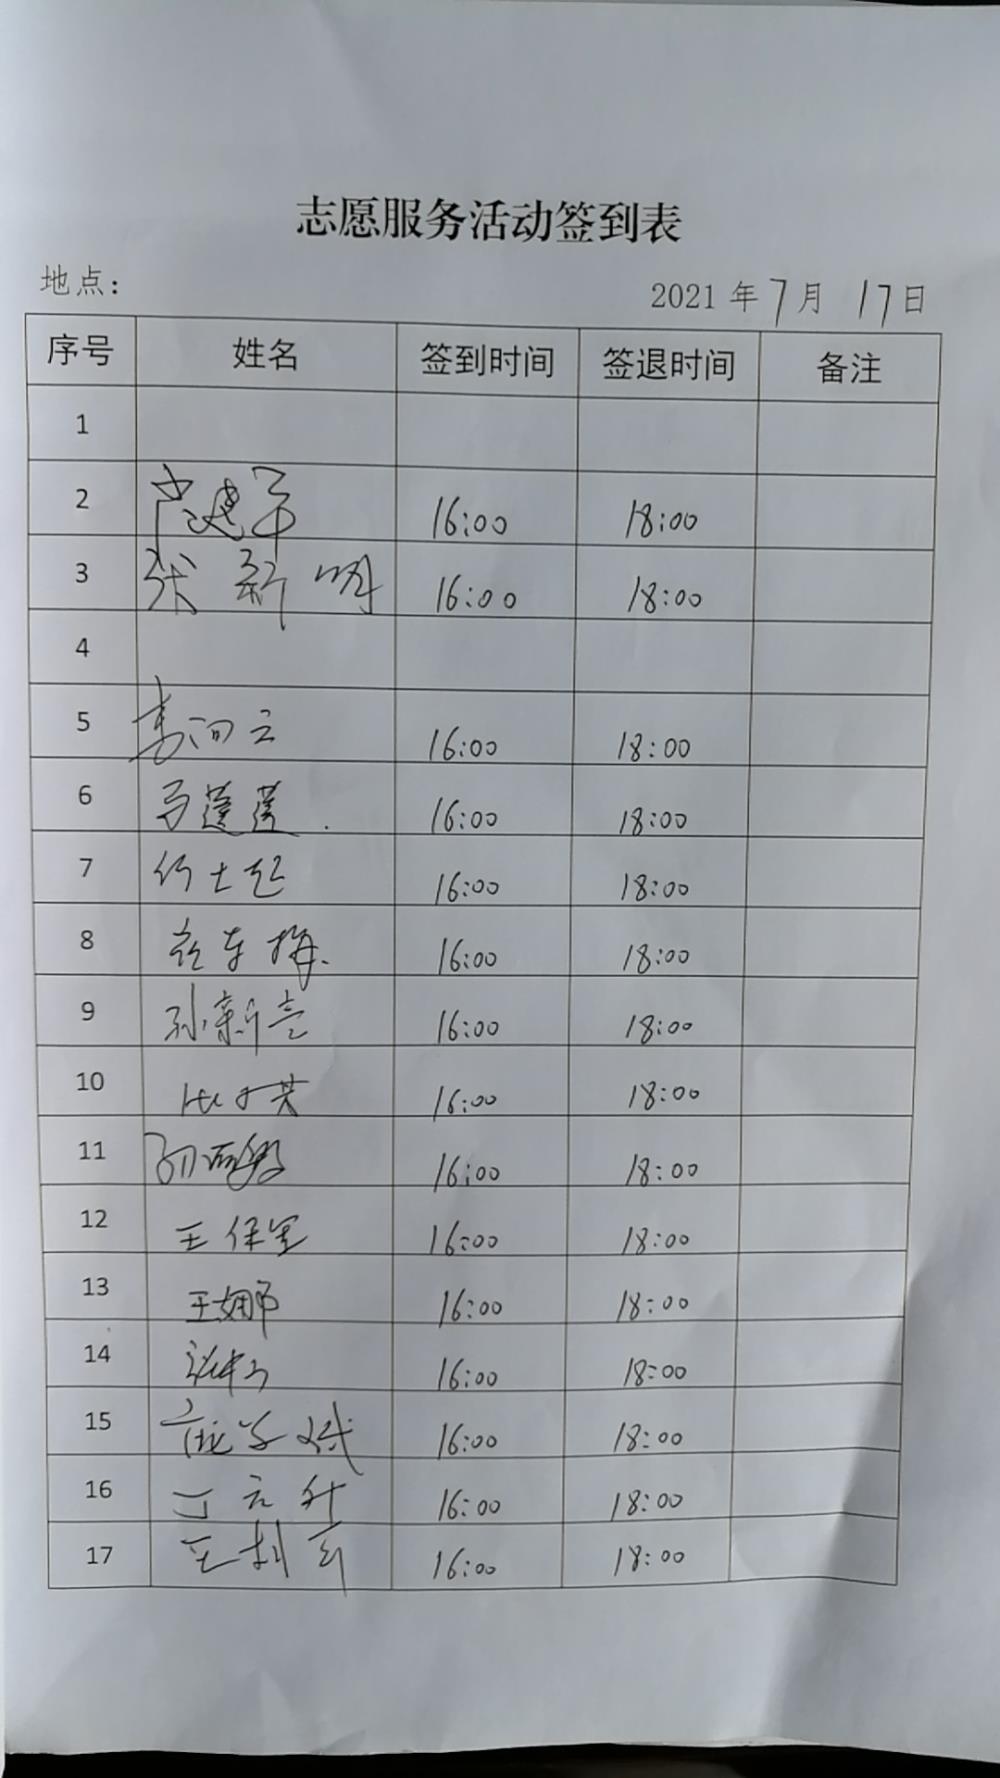 志愿服务活动签到表
地点：
2021 年 7 月 17 日
序号 姓名 签到时间 签退时间 备注
1
2 卢建军 16:00 18:00
3 张新明 16:00 18:00
4
5 16:00 18:00
6 马莲莲 16:00 18:00
7 16:00 18:00
8 16:00 18:00
9 孙新亮 16:00 18:00
10 16:00 18:00
11 16:00 18:00
12 王保军 16:00 18:00
13 王娜 16:00 18:00
14 16:00 18:00
15 16:00 18:00
16 丁元升 16:00 18:00
17 16:00 18:00